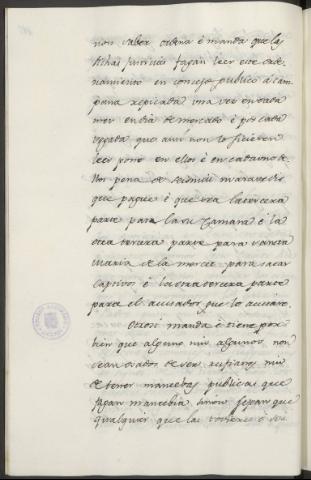 non saber ordena é manda que las
dichas Justicias fagan leer este orde-
namiento en concejo publico á cam-
pana repicada una vez en cada
mes en dia de mercado é por cada
vegada que asi non lo ficieren
leer pone en ellos é en cada uno de
llos pena de maravedis
que paguen é que sea la tercera
parte para la su Camara é la
otra tercera parte para Santa
Maria de la merced para sacar
captivos é la otra tercera parte
para el acusador que lo acusare.
Otrosi manda é tiene por
bien que alguno nin algunos non
sean osados de ser rufianes nin
de tener mancebas publicas que
fagan mancebia sinon sepan que
qualquier que la toviere é